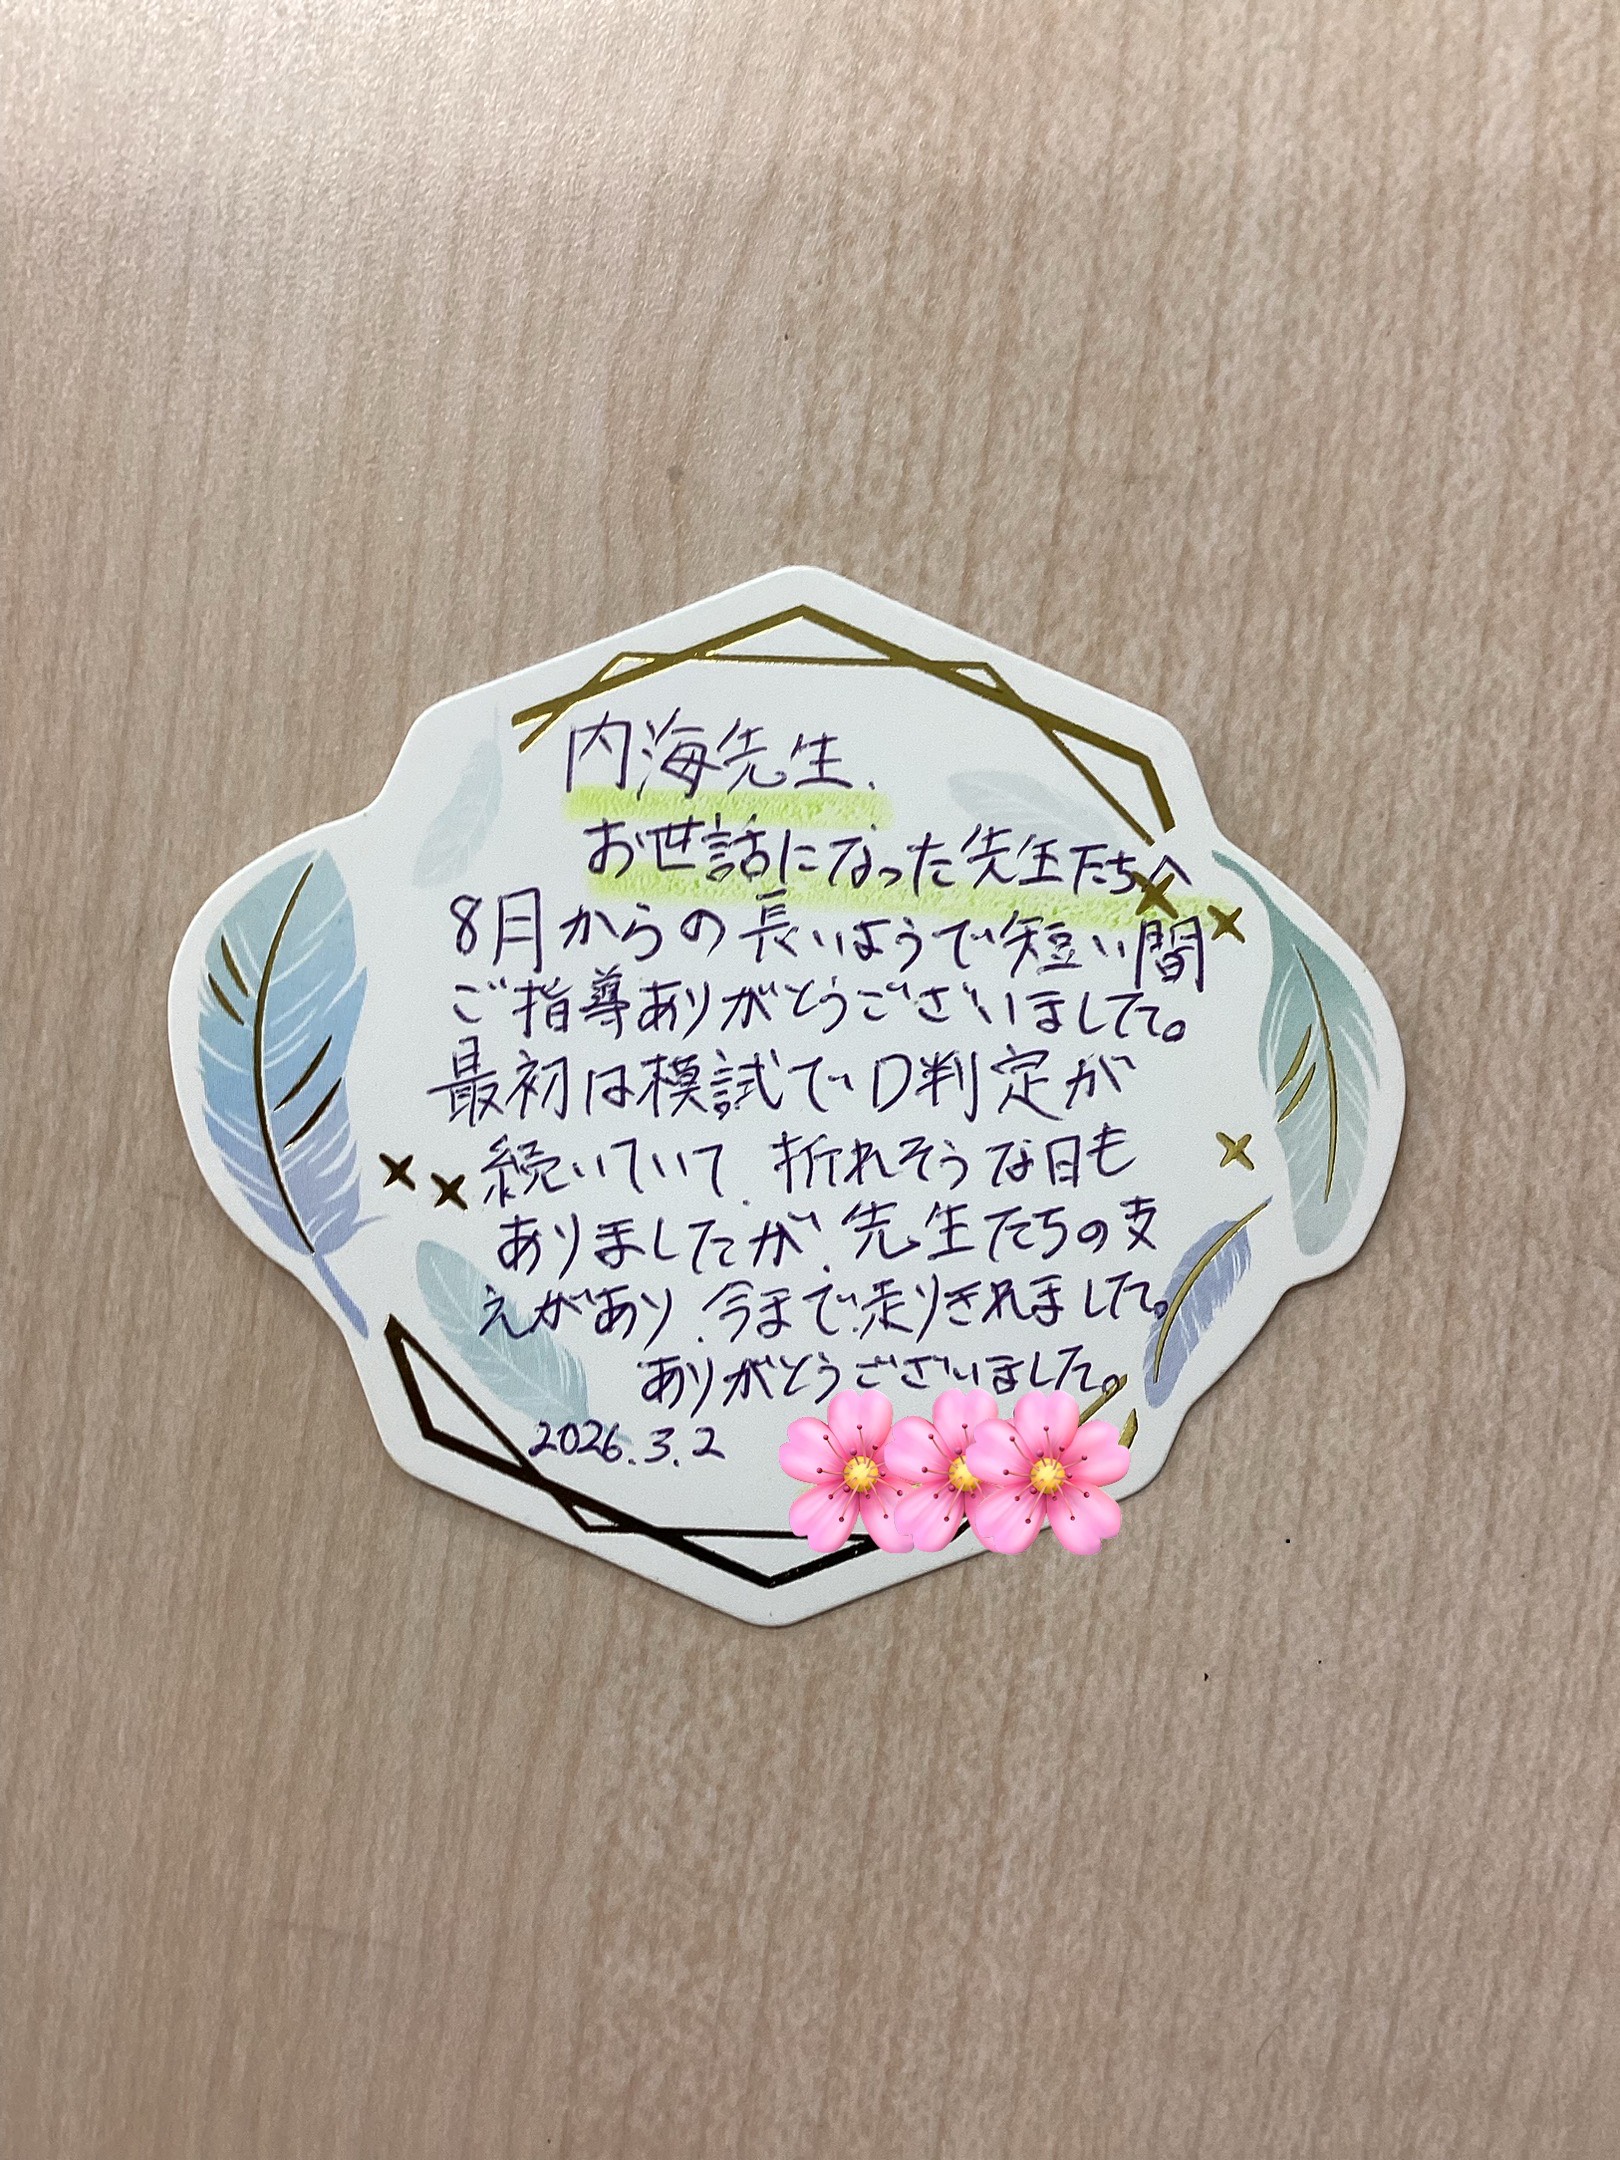 内海先生、
お世話になった先生たちへ
8月からの長いようで短い間
ご指導ありがとうございました。
最初は模試でD判定が
続いていて、折れそうな日も
ありましたが、先生たちの支
えがあり、今まで走りきれました。
ありがとうございました。
2026.3.2